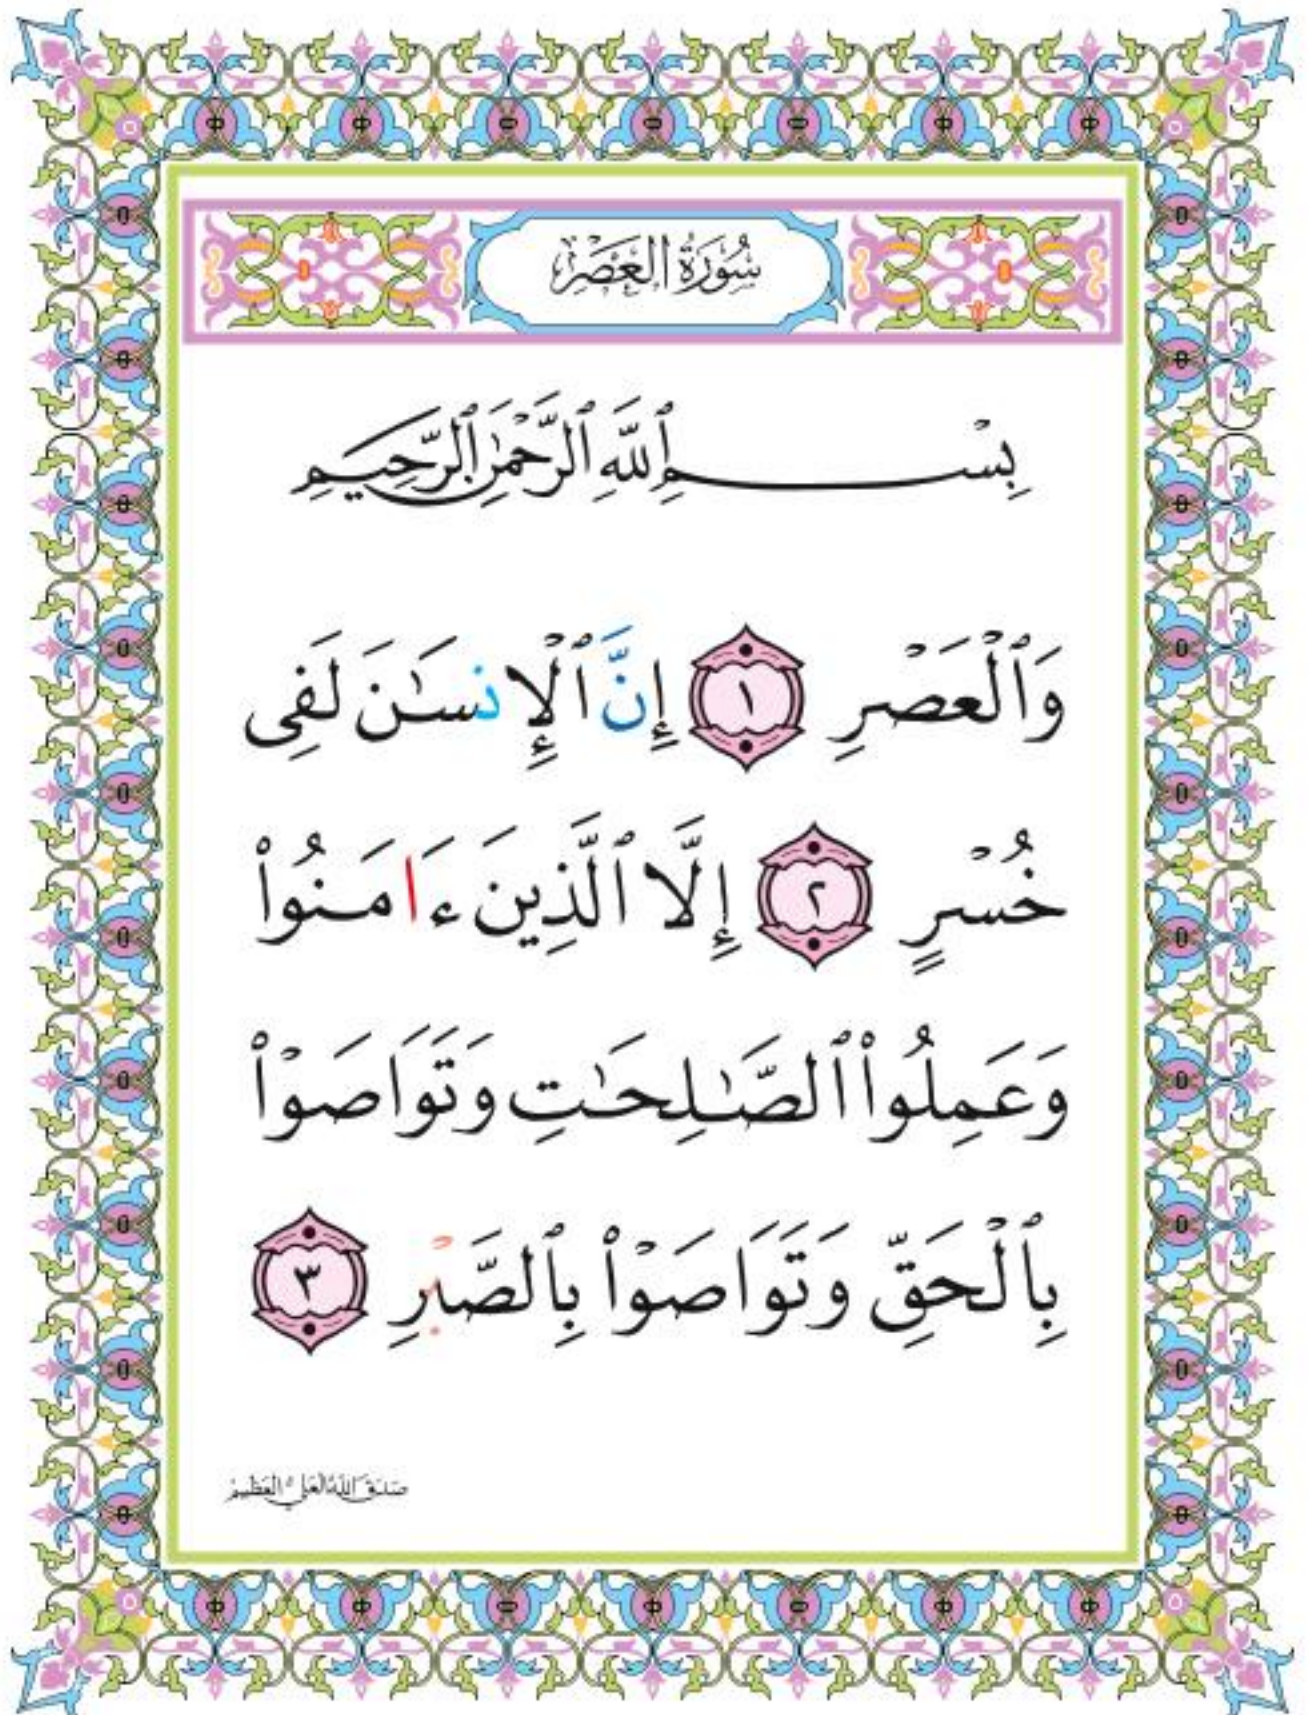 سُورَةُ العَصْرِ
بِسْمِ ٱللَّهِ ٱلرَّحْمَٰنِ ٱلرَّحِيمِ
وَٱلْعَصْرِ ١ إِنَّ ٱلْإِنسَٰنَ لَفِى
خُسْرٍ ٢ إِلَّا ٱلَّذِينَ ءَامَنُوا۟
وَعَمِلُوا۟ ٱلصَّٰلِحَٰتِ وَتَوَاصَوْا۟
بِٱلْحَقِّ وَتَوَاصَوْا۟ بِٱلصَّبْرِ ٣
صَدَقَ اللَّهُ العَلِيُّ العَظِيمُ